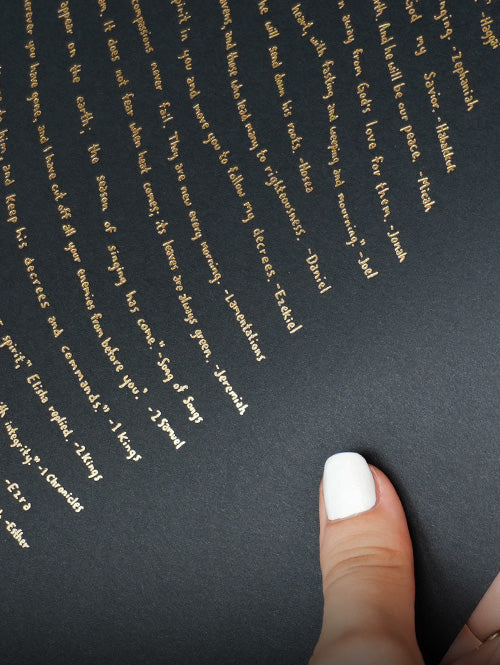 -Hagga
nging. -Zephaniah
God my Savior. -Habakkuk
And he will be our peace. -Micah
away from God's love for them. -Jonah
heart, with fasting and weeping and mourning." -Joel
he will send down his roots. -Hosea
and those who lead many to righteousness. -Daniel
pirit in you and move you to follow my decrees. -Ezekiel
compassions never fail. They are new every morning. -Lamentations
it does not fear when heat comes; its leaves are always green. -Jeremiah
appear on the earth; the season of singing has come." -Song of Songs
you have gone, and I have cut off all your enemies from before you." -2 Samuel
him, and keep his decrees and commands," -1 Kings
spirit," Elisha replied. -2 Kings
integrity." -1 Chronicles
-Ezra
-Esther